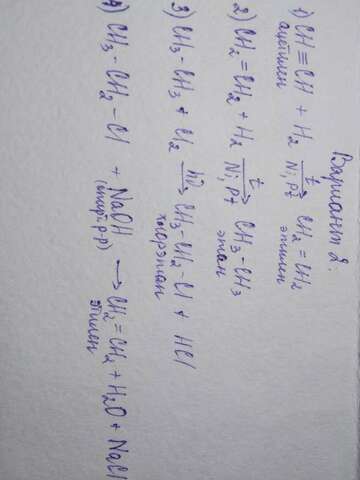 Вариант 2.
1) CH≡CH + H2 t→ Ni, Pt CH2=CH2
ацетилен этилен
2) CH2=CH2 + H2 t→ Ni, Pt CH3-CH3
этан
3) CH3-CH3 + Cl2 hν→ CH3-CH2-Cl + HCl
хлорэтан
4) CH3-CH2-Cl + NaOH → CH2=CH2 + H2O + NaCl
(спирт. р-р) этилен